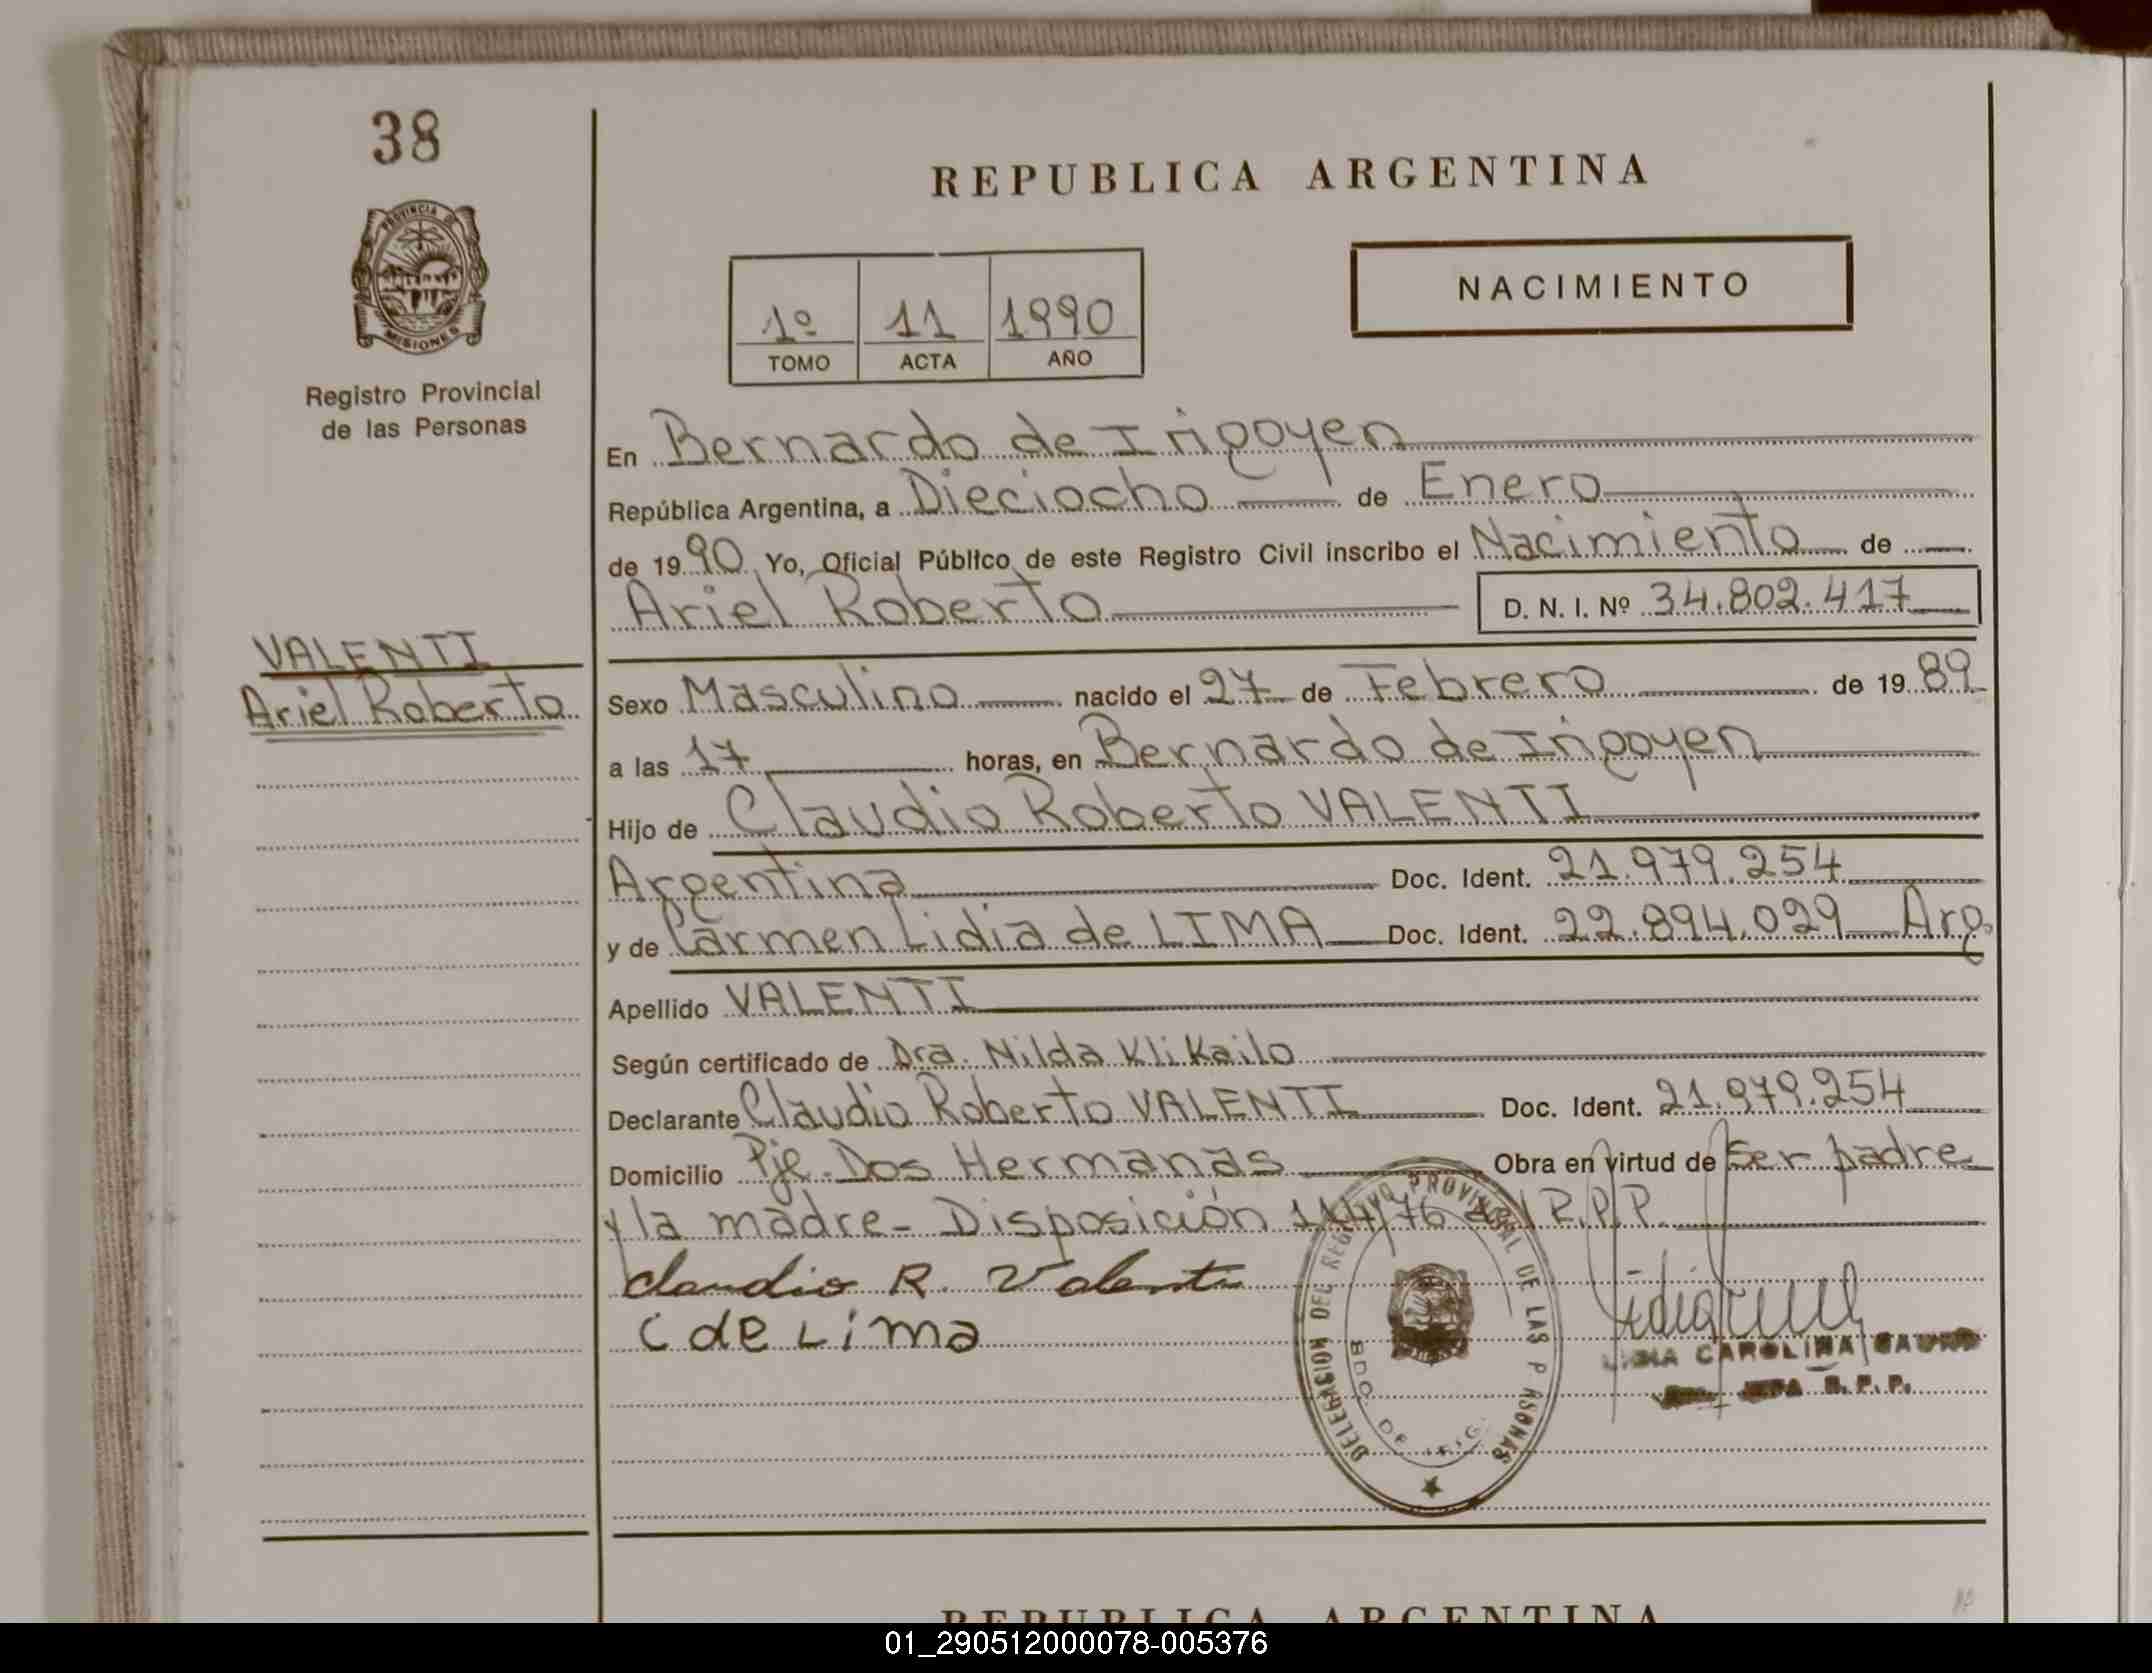 38
PROVINCIA DE
MISIONES
Registro Provincial
de las Personas
REPUBLICA ARGENTINA
1º 11 1990
TOMO ACTA AÑO
NACIMIENTO
En Bernardo de Irigoyen
República Argentina, a Dieciocho de Enero
de 1990 Yo, Oficial Público de este Registro Civil inscribo el Nacimiento de
Ariel Roberto D. N. I. Nº 34.802.417
VALENTI
Ariel Roberto
Sexo Masculino nacido el 27 de Febrero de 1989
a las 17 horas, en Bernardo de Irigoyen
Hijo de Claudio Roberto VALENTI
Argentina Doc. Ident. 21.979.254
y de Carmen Lidia de LIMA Doc. Ident. 22.894.029 Arg.
Apellido VALENTI
Según certificado de Dra. Nilda Klikailo
Declarante Claudio Roberto VALENTI Doc. Ident. 21.979.254
Domicilio Pje. Dos Hermanas Obra en virtud de Ser padre
y la madre - Disposición 114/76 R.P.P.
Claudio R. Valenti
C de Lima
DELEGASION DEL REGISTRO PROVINCIAL DE LAS P ASONAS
BDO. DE IRIG.
CAROLINA
R. P. P.
REPUBLICA ARGENTINA
01_290512000078-005376